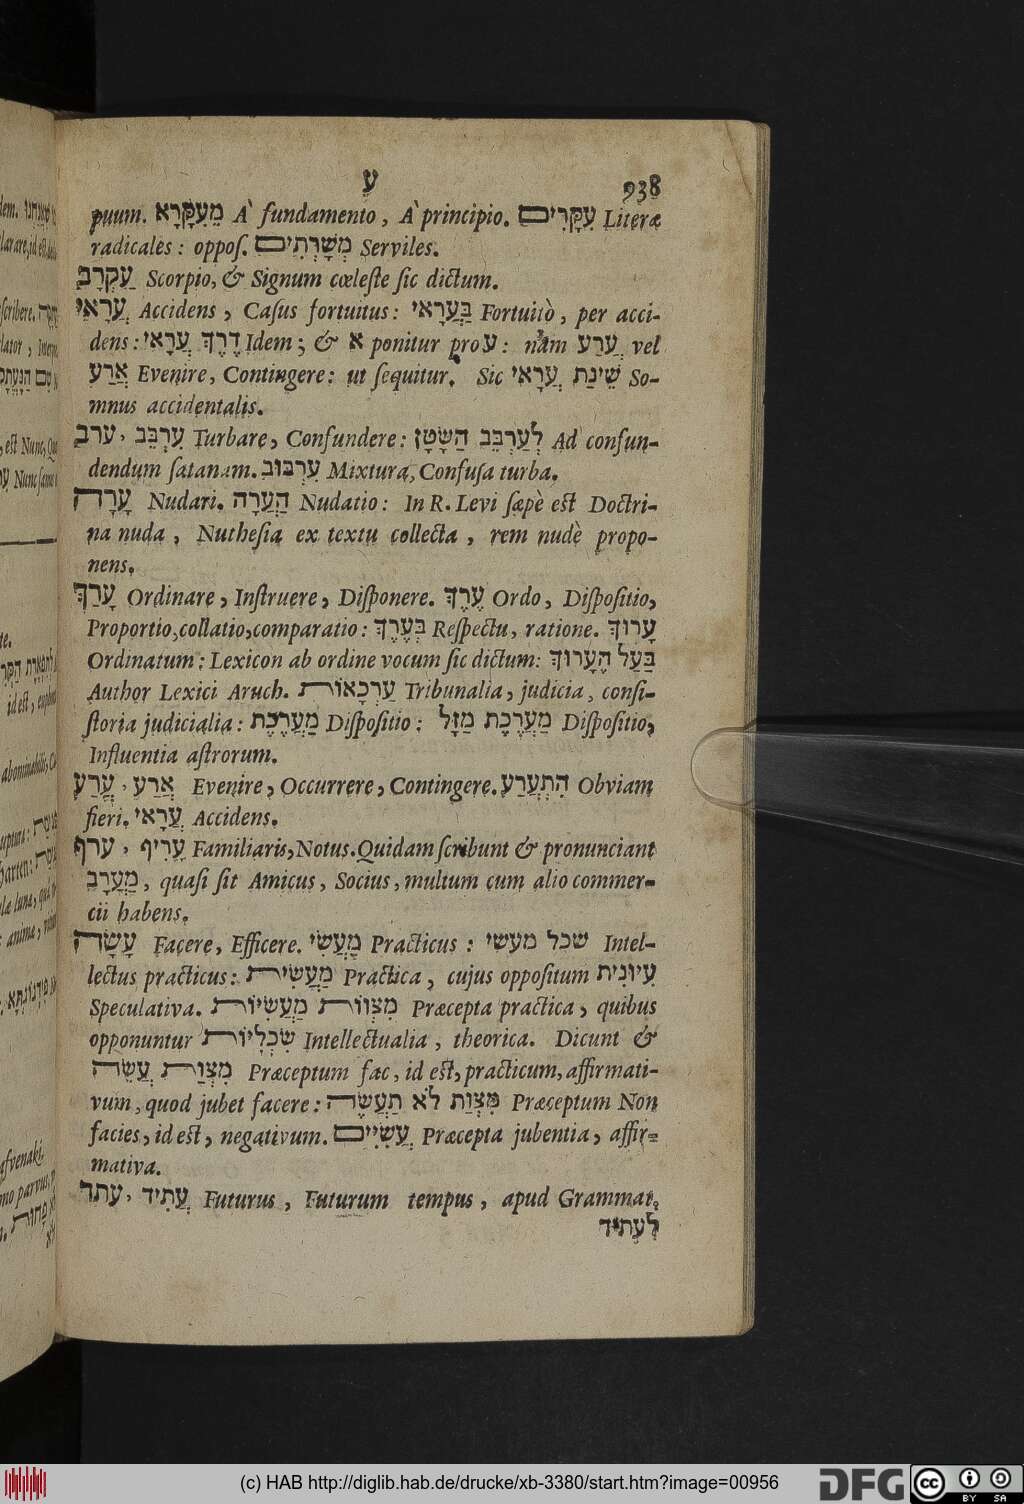 ע 938
puum. מֵעִקָּרָא A` fundamento, A` principio. עִקָּרִים Literæ
radicales: oppoſ. מְשָׁרְתִים Serviles.
עַקְרָב Scorpio, & Signum cœleſte ſic dictum.
עֲרָאִי Accidens, Caſus fortuitus: בַּעֲרָאִי Fortuitò, per acci-
dens: דֶרֶךְ עֲרָאִי Idem; & א ponitur pro ע: nam עֲרַע vel
אֲרַע Evenire, Contingere: ut ſequitur. Sic שֵׁינַת עֲרָאִי So-
mnus accidentalis.
ערב, עִרְבֵּב Turbare, Confundere: לְעַרְבֵּב הַשָּׂטָן Ad confun-
dendum ſatanam. עִרְבּוּב Mixtura, Confuſa turba.
עָרָה Nudari. הַעֲרָה Nudatio: In R. Levi ſæpè eſt Doctri-
na nuda, Nutheſia ex textu collecta, rem nudè propo-
nens.
עָרַךְ Ordinare, Inſtruere, Diſponere. עֶרֶךְ Ordo, Diſpoſitio,
Proportio, collatio, comparatio: בְּעֶרֶךְ Reſpectu, ratione. עָרוּךְ
Ordinatum: Lexicon ab ordine vocum ſic dictum: בַּעַל הֶעָרוּךְ
Author Lexici Aruch. עַרְכָאוֹת Tribunalia, judicia, conſi-
ſtoria judicialia: מַעֲרֶכֶת Diſpoſitio: מַעֲרֶכֶת מַזָּל Diſpoſitio,
Influentia aſtrorum.
אֲרַע, עֲרַע Evenire, Occurrere, Contingere. הִתְעֲרַע Obviam
fieri. עֲרָאִי Accidens.
ערף, עָרִיף Familiaris, Notus. Quidam ſcribunt & pronunciant
מַעֲרָב, quaſi ſit Amicus, Socius, multum cum alio commer-
cii habens.
עָשָׂה Facere, Efficere. מַעֲשִׂי Practicus: שכל מעשי Intel-
lectus practicus: מַעֲשִׂית Practica, cujus oppoſitum עִיוּנִית
Speculativa. מִצְווֹת מַעֲשִׂיּוֹת Præcepta practica, quibus
opponuntur שִׂכְלִיּוֹת Intellectualia, theorica. Dicunt &
מִצְוַת עֲשֵׂה Præceptum fac, id eſt, practicum, affirmati-
vum, quod jubet facere: מִצְוַת לֹא תַעֲשֶׂה Præceptum Non
facies, id eſt, negativum. עֲשִׂיִּים Præcepta jubentia, affir-
mativa.
עתד, עֲתִיד Futurus, Futurum tempus, apud Grammat.
לְעָתִיד
(c) HAB http://diglib.hab.de/drucke/xb-3380/start.htm?image=00956
DFG
cc BY SA